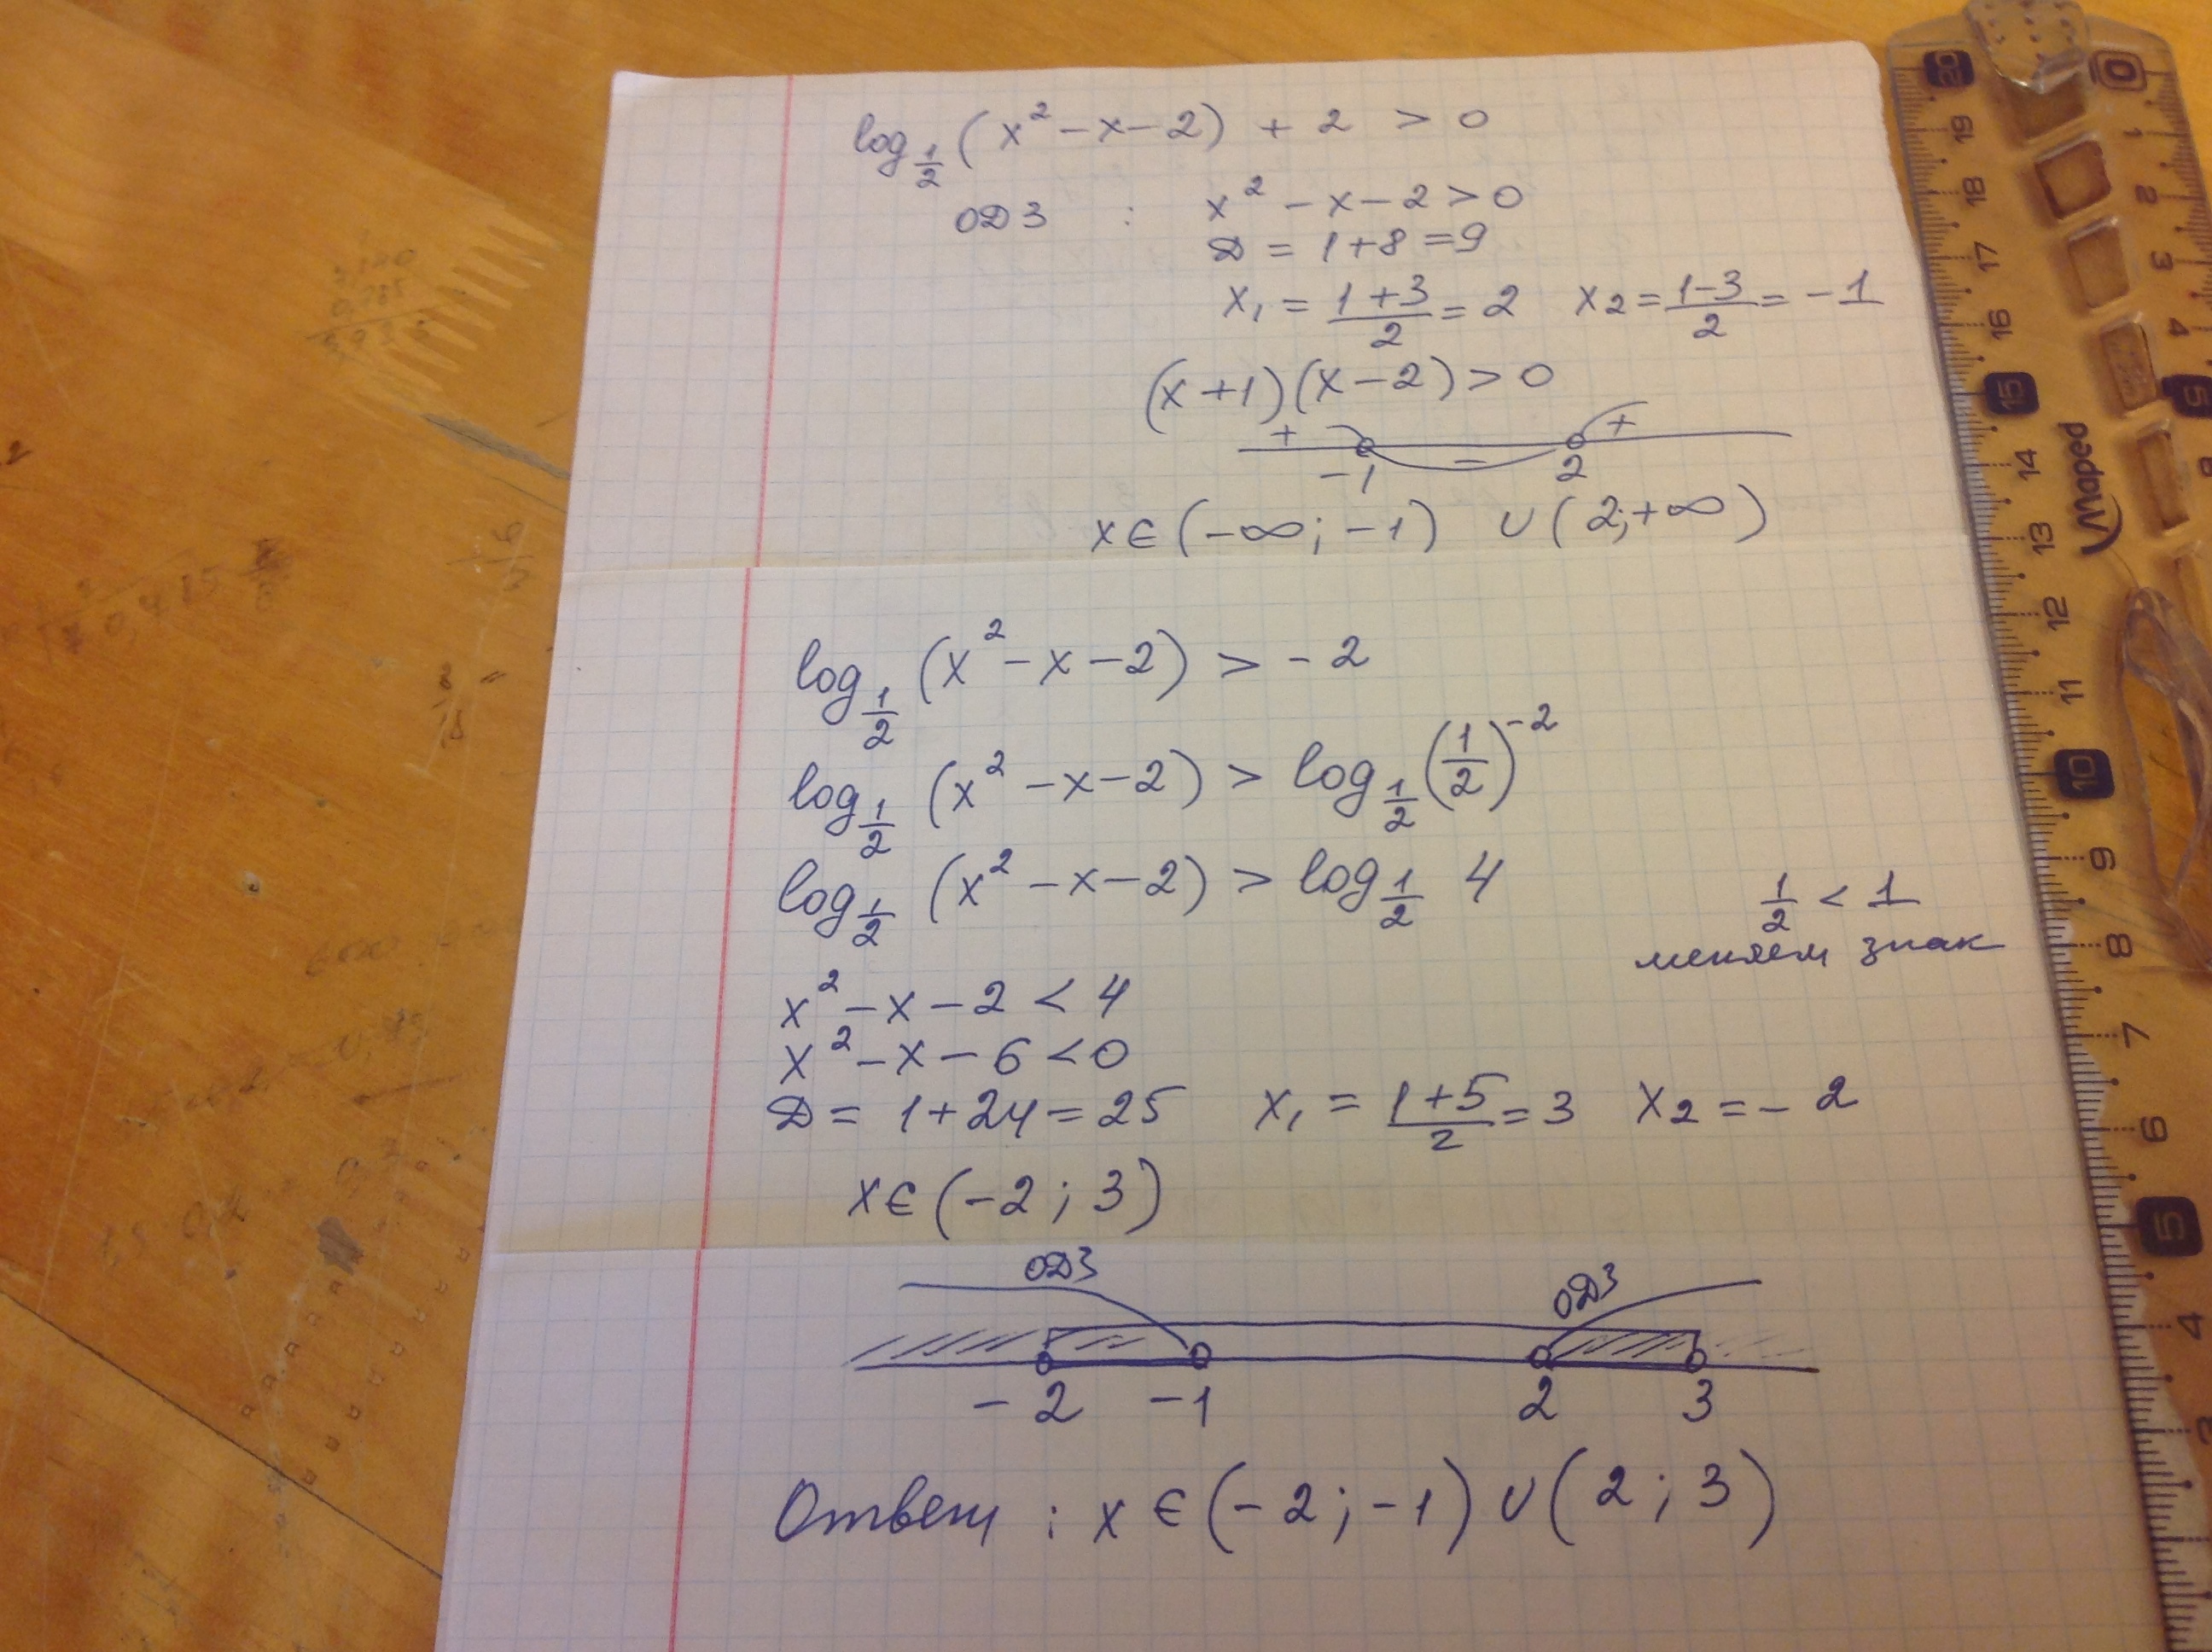 log_{1/2} (x² - x - 2) + 2 > 0
ОДЗ : x² - x - 2 > 0
D = 1 + 8 = 9
x₁ = (1+3)/2 = 2 x₂ = (1-3)/2 = -1
(x + 1)(x - 2) > 0
+ - +
-1 2
x ∈ (-∞; -1) ∪ (2; +∞)
log_{1/2} (x² - x - 2) > -2
log_{1/2} (x² - x - 2) > log_{1/2} (1/2)^{-2}
log_{1/2} (x² - x - 2) > log_{1/2} 4
1/2 < 1
меняем знак
x² - x - 2 < 4
x² - x - 6 < 0
D = 1 + 24 = 25 x₁ = (1+5)/2 = 3 x₂ = -2
x ∈ (-2; 3)
ОДЗ ОДЗ
-2 -1 2 3
Ответ : x ∈ (-2; -1) ∪ (2; 3)
Maped
20 19 18 17 16 15 14 13 12 11 10 9 8 7 6 5 4
0 1 2 3 4